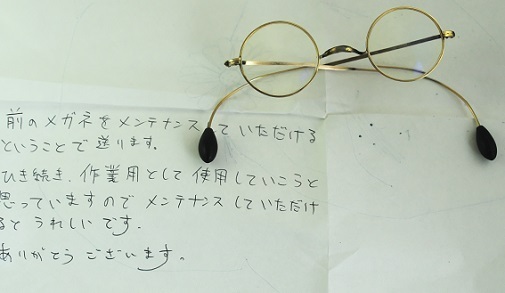 前のメガネをメンテナンスしていただける
ということで送ります。
ひき続き、作業用として使用していこうと
思っていますのでメンテナンスしていただけ
るとうれしいです。
ありがとうございます。